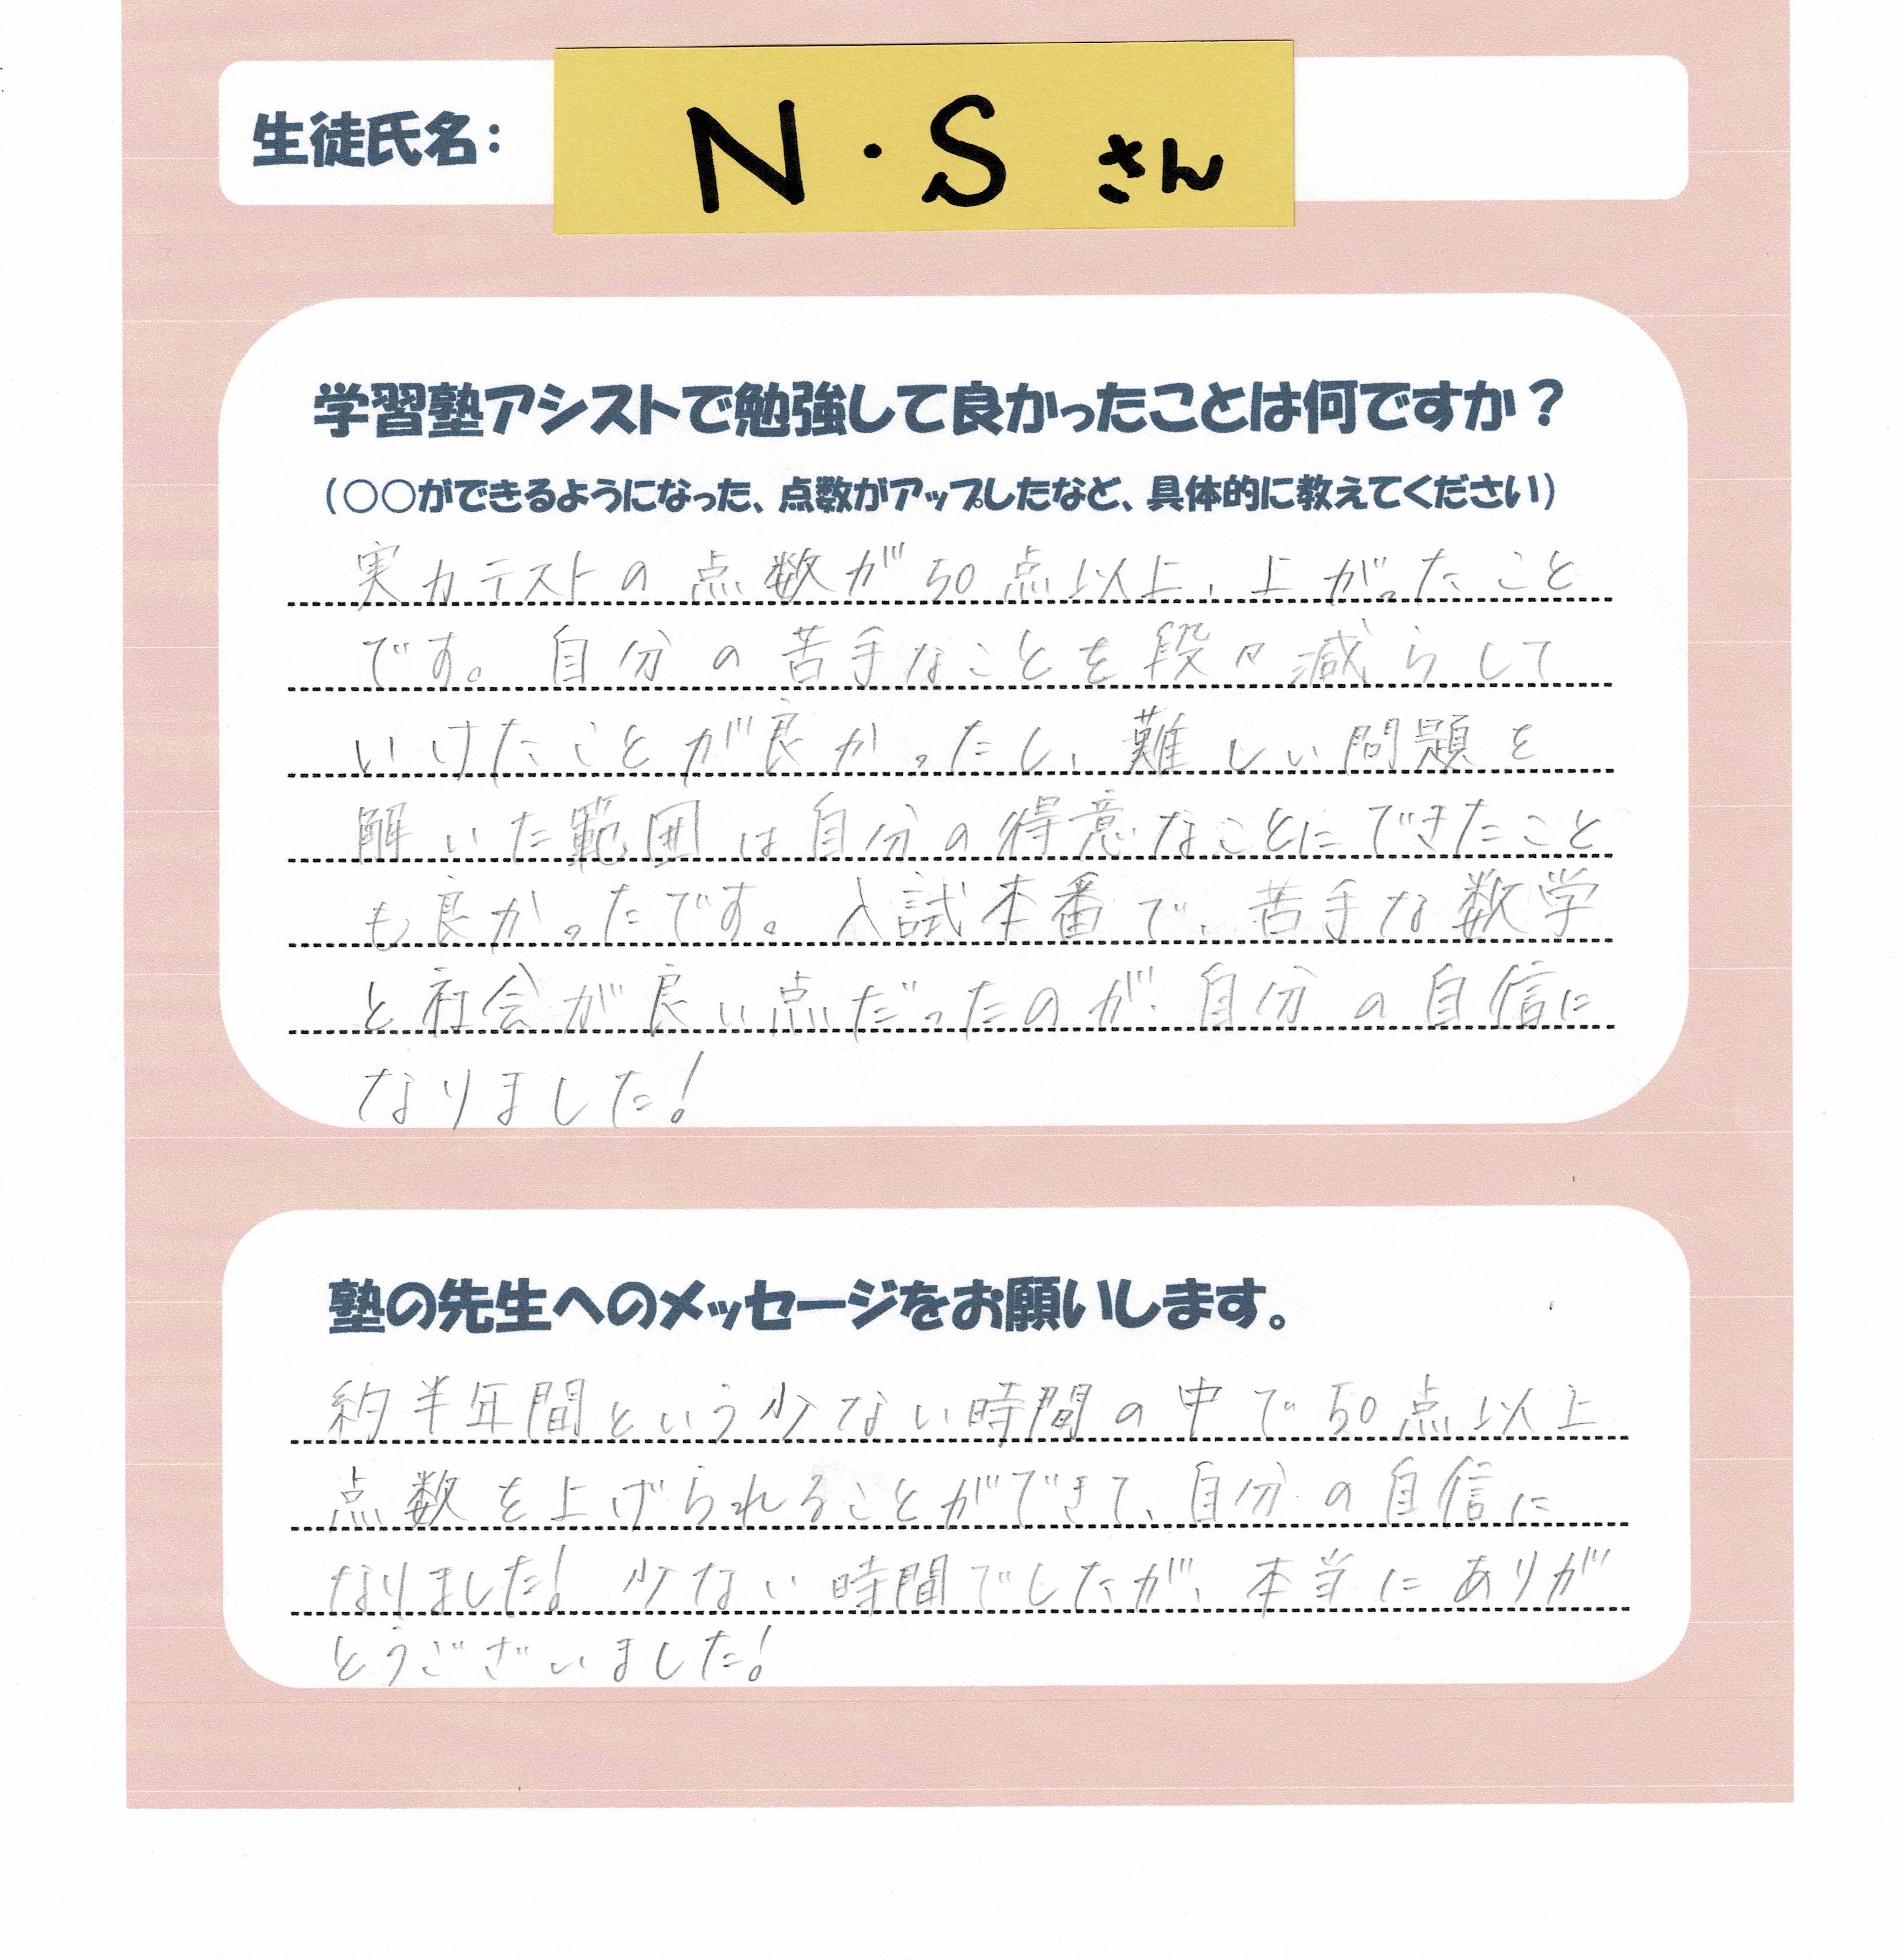 生徒氏名：
N・S さん
学習塾アシストで勉強して良かったことは何ですか？
（○○ができるようになった、点数がアップしたなど、具体的に教えてください）
実力テストの点数が50点以上、上がったこと
です。自分の苦手なことを段々減らして
いけたことが良かったし、難しい問題を
解いた範囲は自分の得意なことにできたこと
も良かったです。入試本番で、苦手な数学
と社会が良い点だったのが、自分の自信に
なりました！
塾の先生へのメッセージをお願いします。
約半年間という少ない時間の中で50点以上
点数を上げられることができて、自分の自信に
なりました！少ない時間でしたが、本当にありが
とうございました！